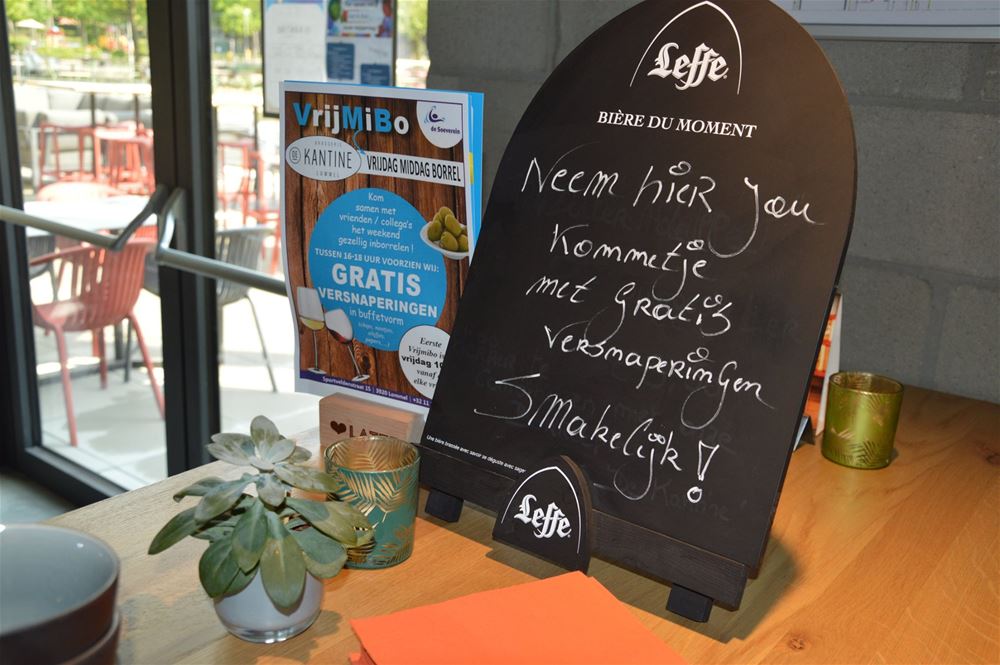 VrijMiBo
de Soeverein
BRASSERIE
DE KANTINE
LOMMEL
VRIJDAG MIDDAG BORREL
Kom
samen met
vrienden / collega's
het weekend
gezellig inborrelen !
TUSSEN 16-18 UUR VOORZIEN WIJ:
GRATIS
VERSNAPERINGEN
in buffetvorm
Eerste
Vrijmibo is
vrijdag 10
vanaf
elke vr
Sportveldenstraat 15 | 3920 Lommel | +32 11
Leffe
BIÈRE DU MOMENT
Neem hier jou
kommetje
met gratis
versnaperingen
Smakelijk!
Une bière brassée avec savoir se déguste avec sage
Leffe